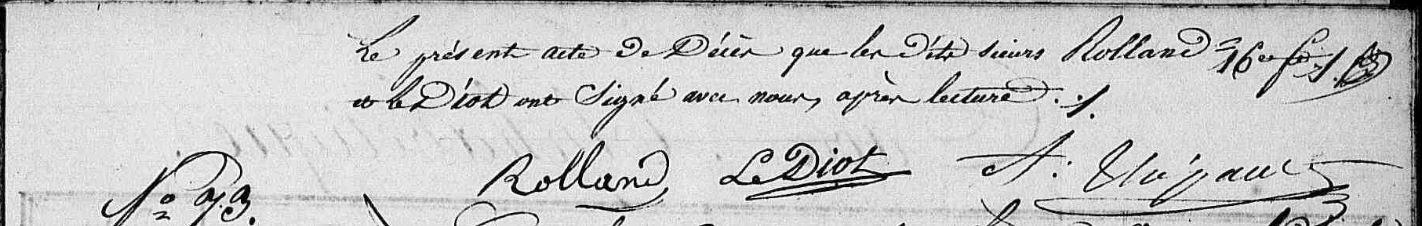 Le présent acte de Décès que les dits sieurs Rolland
et le Diot ont Signé avec nous, après lecture ./.
Rolland Le Diot
No 93.